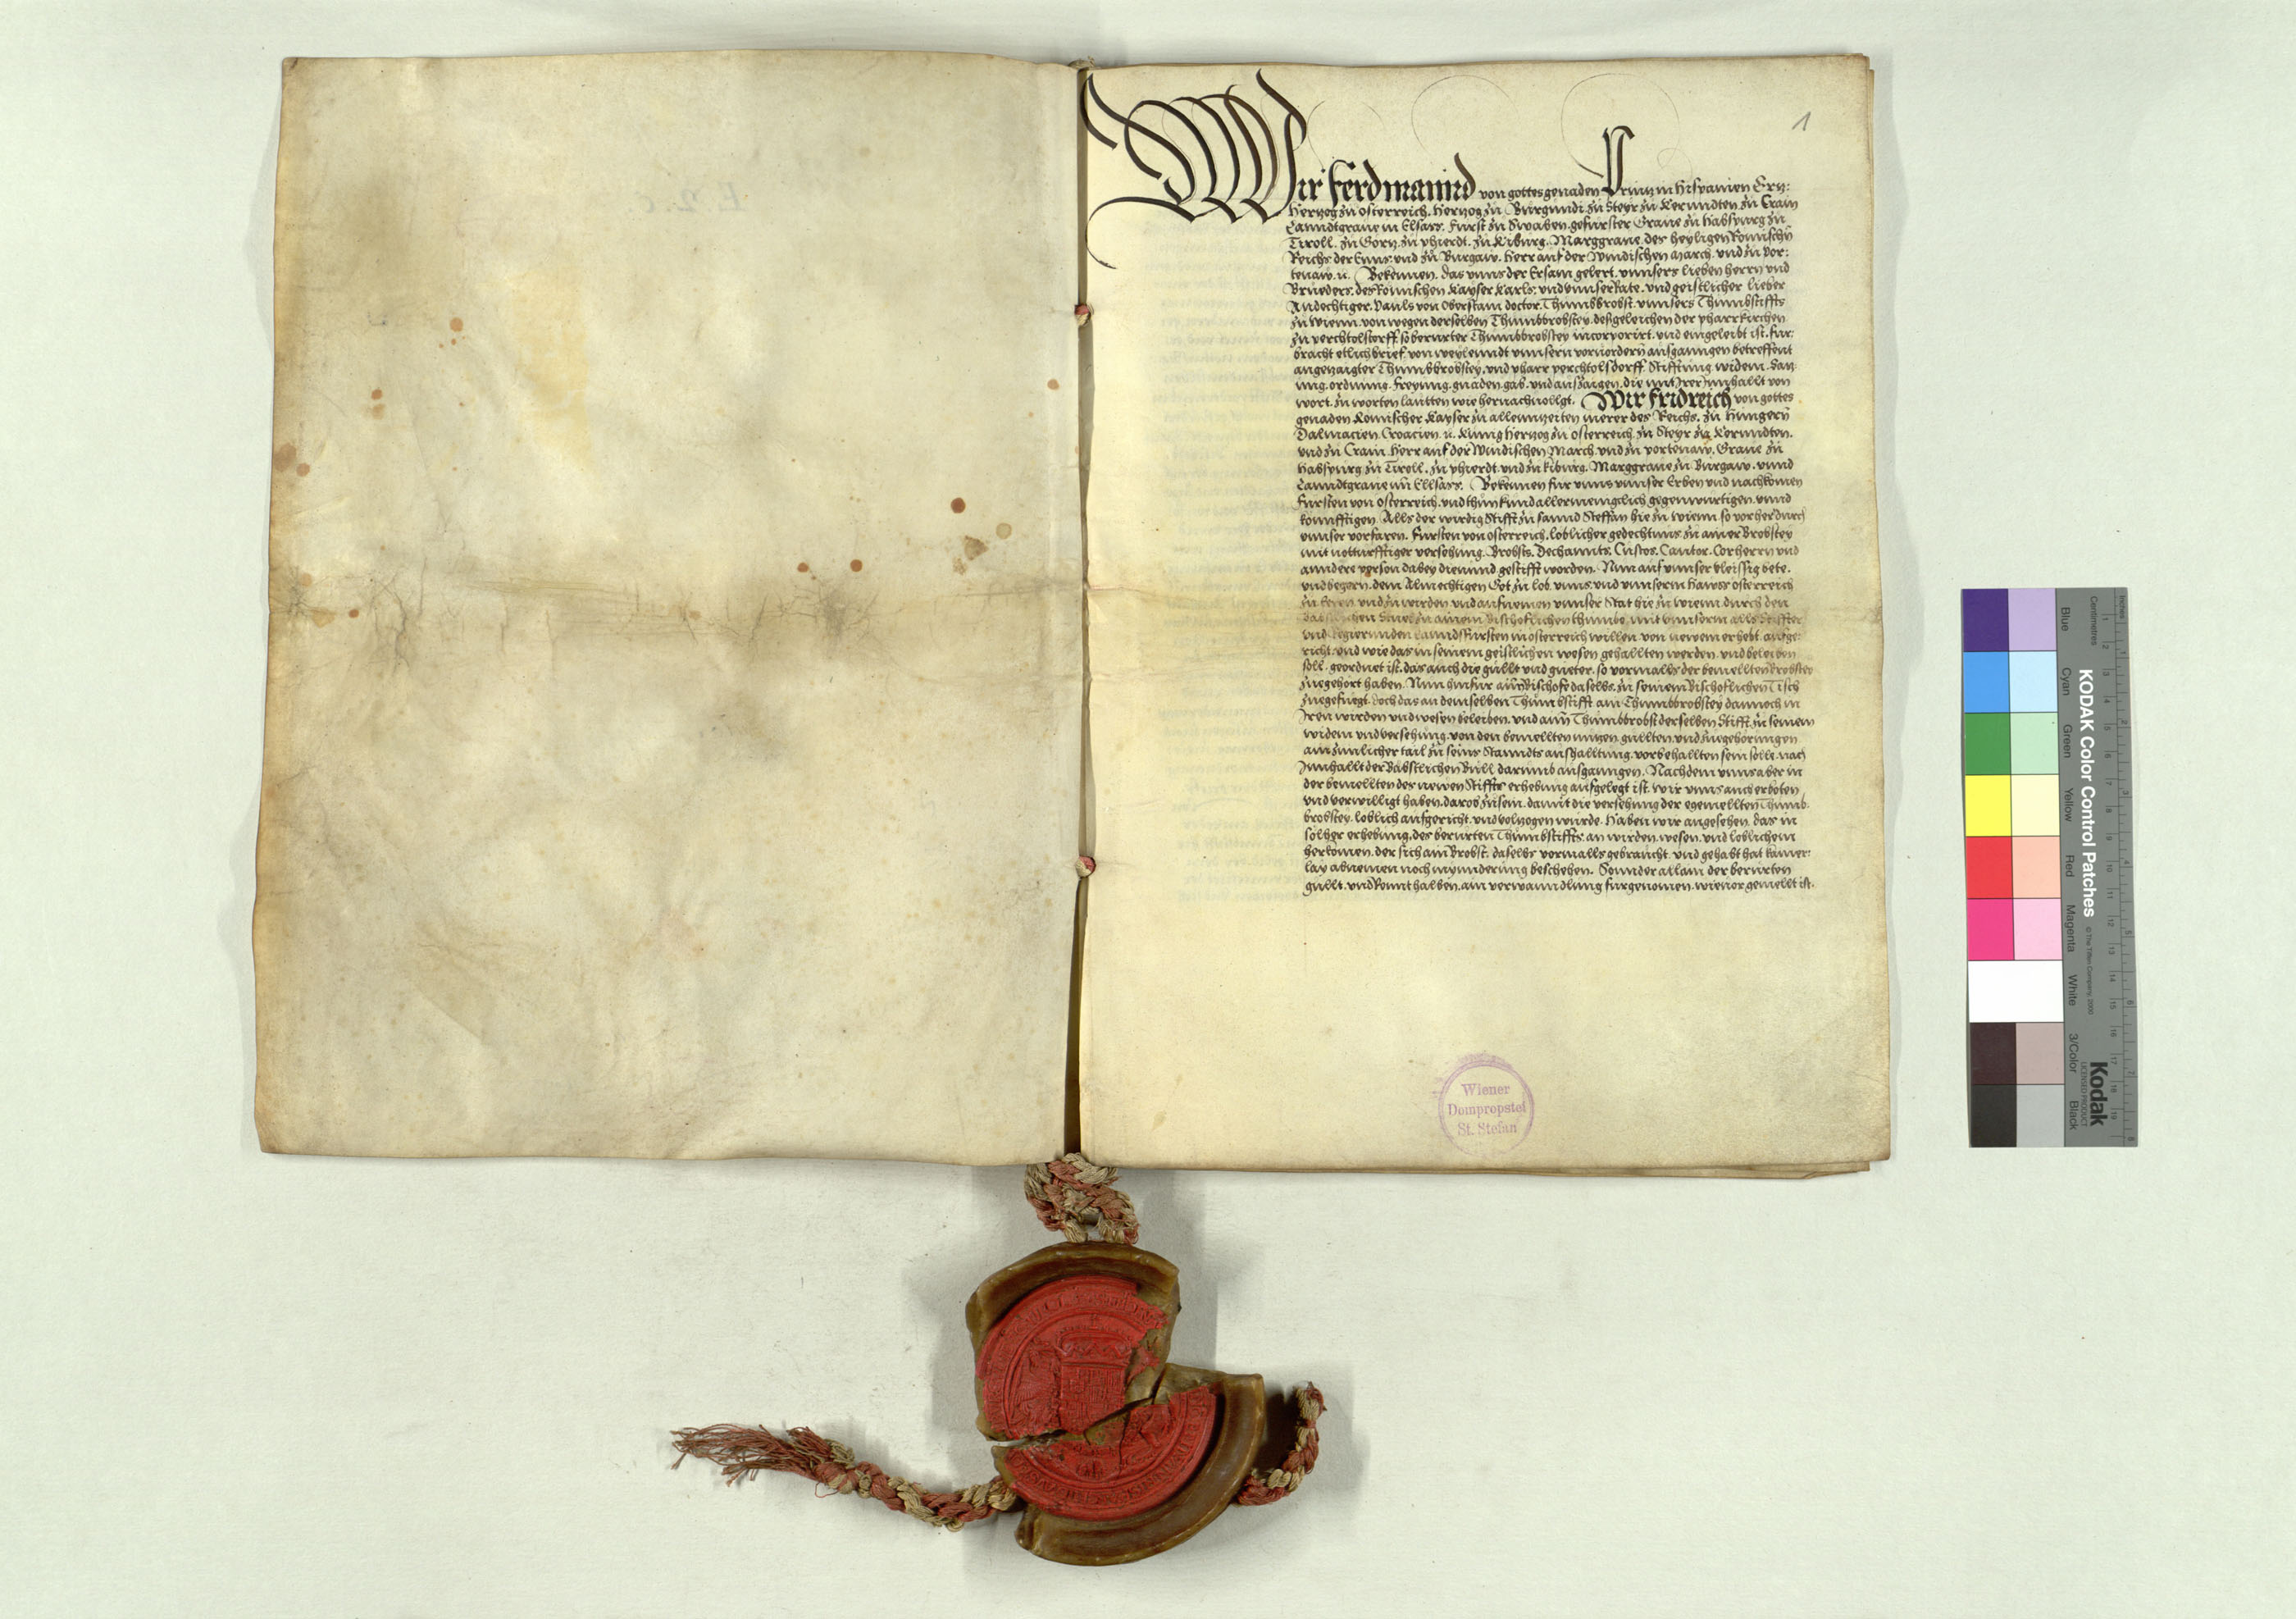 1
Wir Ferdinannd von gottes genaden Printz in Hispanien Ertz:
Hertzog zu Osterreich. Hertzog zu Burgundi zu Steyr zu Kernndten zu Crain
Lanndtgraue in Ellsass. Furst zu Swaben. gefurster Graue zu Habspurg zu
Tiroll. zu Görtz. zu Phierdt. zu Kiburg. Marggraue des heyligen Römischn
Reichs der Enns. vnd zu Burgaw. Herr auf der Windischen March. vnd zu Por:
tenaw. rc. Bekennen. das vnns der Ersam gelert. vnnsers lieben herrn vnd
Brueders. des Römischen Kayser Karls. vnd vnnser Rate. vnd geistlicher lieber
Andechtiger. Pauls von Oberstain doctor. Thumbbrobst. vnnsers Thumbstiffts
zu Wienn. von wegen derselben Thumbbrobstey. desgeleichen der pharrkirchen
zu Perchtolstorff. so berurter Thumbbrobstey incorporirt. vnd eingeleibt ist. fur:
bracht etlich brief. von weylenndt vnnsern voruordern ausganngen betreffent
angetzaigter Thumbbrobstey. vnd pharr Perchtolsdorff. Stifftung. widem. Saz
ung. ordnung. freyung. gnaden. gab. vnd ausszaigen. die mit Irer Innhallt von
wort. zu worten lautten wie hernachuollgt. Wir Fridreich von gottes
genaden Romischer Kayser zu allenntzeiten merer des Reichs. zu Hungern
Dalmacien Croacien. rc. Kunig Hertzog zu Osterreich. zu Steyr zu Kernndten.
vnd zu Crain. Herr auf der Windischen March. vnd zu Portenaw. Graue zu
Habspurg zu Tiroll. zu Phierdt. vnd zu Kiburg. Marggraue zu Burgaw. vnnd
Lanndtgraue im Ellsass. Bekennen fur vnns vnnser Erben vnd nachkomen
Fursten von Osterreich. vnd thun kund allermenigclich gegenwurtigen. vnnd
konnfftigen. Alls der wirdig Stifft zu sannd Steffan hie zu Wienn. so vorher durch
vnnser vorfaren. Fursten von Osterreich. loblicher gedechtnus. zu ainer Brobstey
mit notturfftiger versehung. Brobsts. Dechannts. Custos. Cantor. Corherrn vnd
anndere person dabey dienund. gestifft worden. Nun auf vnnser vleissig bete.
vnd begern. dem Almechtigen Got zu lob. vnns. vnd vnnserm Hawss Osterreich
zu Eren. vnd zu wirden. vnd aufnemen vnnser Stat hie zu Wienn. durch den
Babstlichen Stuel zu ainem Bischoflichen thumbe. mit vnnserm alls Stiffter
vnd Regierunden Lanndsfursten in Osterreich willen. von newem erhebt. aufge:
richt. vnd wie das in seinem geistlichen wesen gehallten werden. vnd beleiben
soll. geordnet ist. das auch die gullt. vnd gueter. so vormalls der bemellten Brobstey
zuegehort haben. Nun hinfur ainem Bischofe daselbs. zu seinem Bischoflichen Tisch
zuegefuegt. doch das an demselben Thumbstifft ain Thumbbrobstey dannoch in
Iren wirden vnd wesen beleiben. vnd ainn Thumbbrobst derselben Stifft. zu seinem
widem vnd versehung. von den bemellten nutzen. gullten. vnd zuegehörungen
ain zimlicher tail zu seins Stanndts aufhalltung. vorbehallten sein solle. nach
Innhallt der Babstlichen Bull darumb ausganngen. Nachdem vnns aber in
der bemellten des newen Stiffts erhebung aufgelegt ist. Wir vnns auch erboten
vnd verwilligt haben. darob zu sein. damit die versehung der egemellten Thumb:
brobstey. loblich aufgericht. vnd volzogen wurde. Haben wir angesehen. das in
solher erhebung. des berurten Thumbstiffts. an wirden. wesen. vnd loblichem
herkomen. der sich ain Brobst. daselbs vormalls gebraucht. vnd gehabt hat kainer:
lay abnemen noch mynnderung beschehen. Sonnder allain der berurten
gullt. vnd Rennt halben. ain verwanndlung furgenomen. wie vor gemellt ist.
Wiener
Dompropstei
St. Stefan
KODAK Color Control Patches
© The Tiffen Company, 2000
Kodak
LICENSED PRODUCT
Blue Cyan Green Yellow Red Magenta White 3/Color Black
Centimetres
Inches